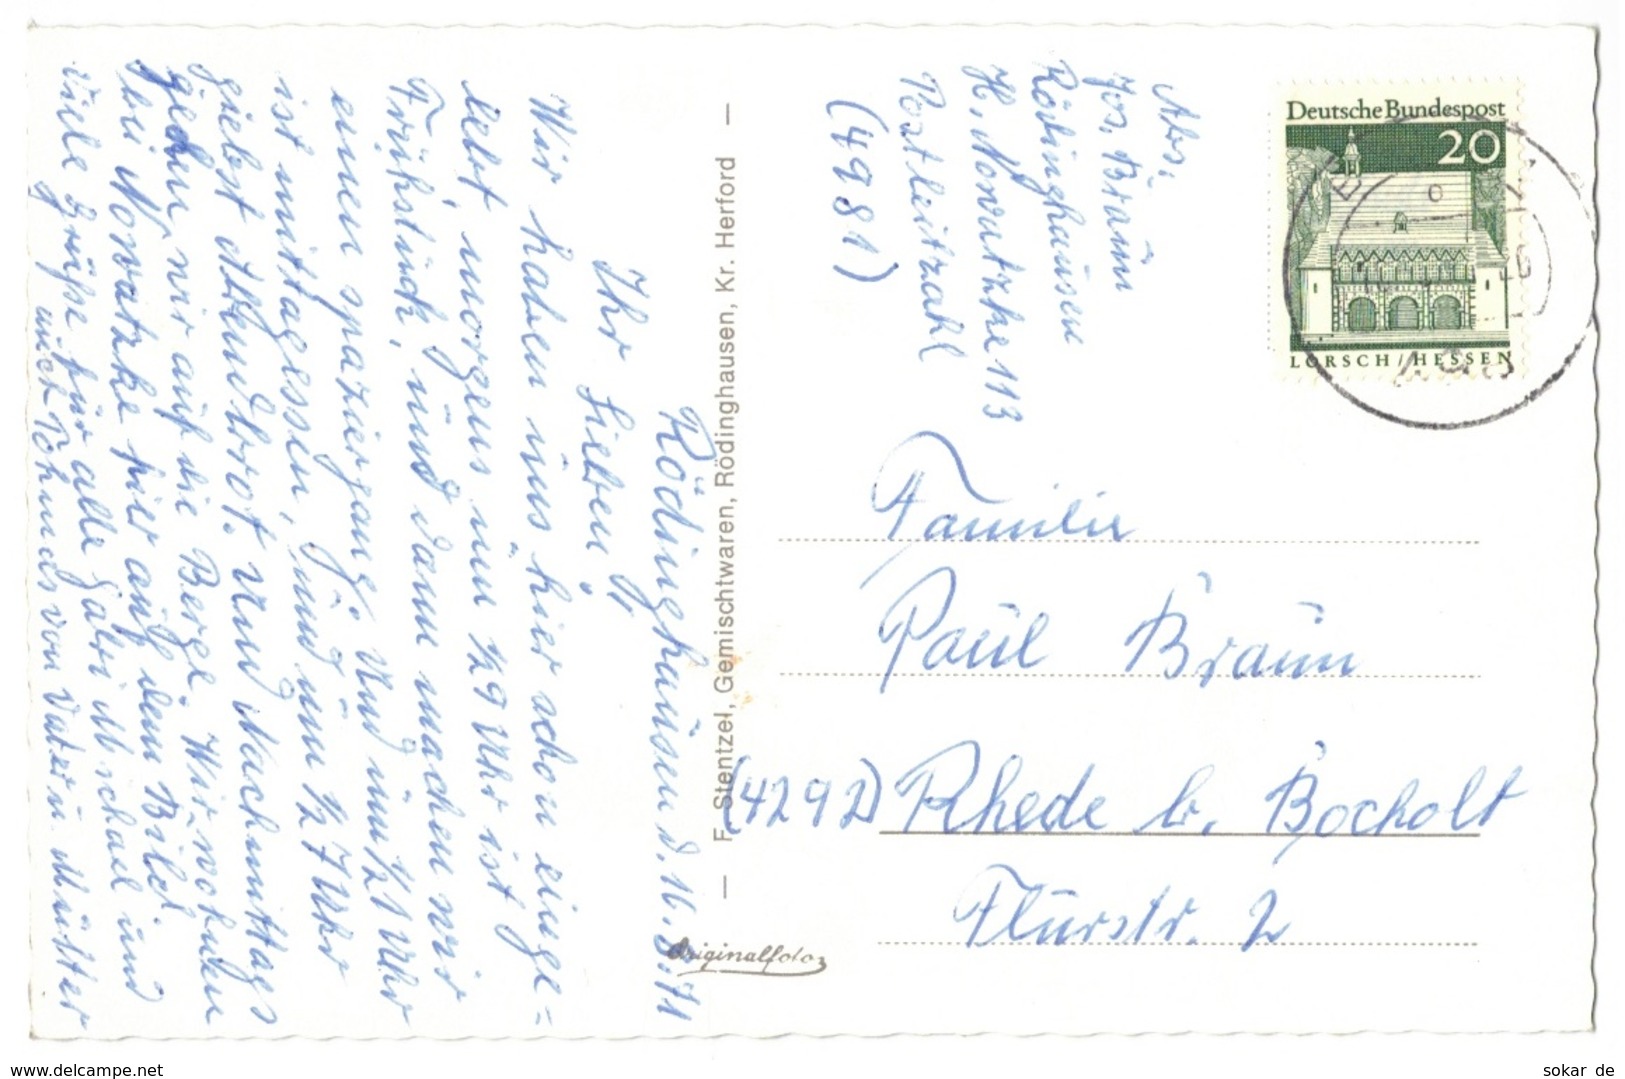 Rödinghausen d. 16. 5. 71
Ihr Lieben!
Wir haben uns hier schon einge=
lebt, morgens um ½ 9 Uhr ist
Frühstück, und dann machen wir
einen spaziergang. Und um ½ 1 Uhr
ist mittagessen, und um ½ 7 Uhr
giebst Abendbrot. Und Nachmittags
gehen wir auf die Berge. Wir wohnen
bei Norvatzke hier auf dem Bild
viele Grüße für alle Gabri Michael und
von Vater u. Mutter
Abs.
Jos. Braun
Rödinghausen
H. Norvatzke 113
Postleitzahl
(4981)
Deutsche Bundespost
20
LORSCH/HESSEN
Familie
Paul Braun
(4292) Rhede b. Bocholt
Flurstr. 2
F. Stentzel, Gemischtwaren, Rödinghausen, Kr. Herford
Originalfoto
www.delcampe.net
sokar de